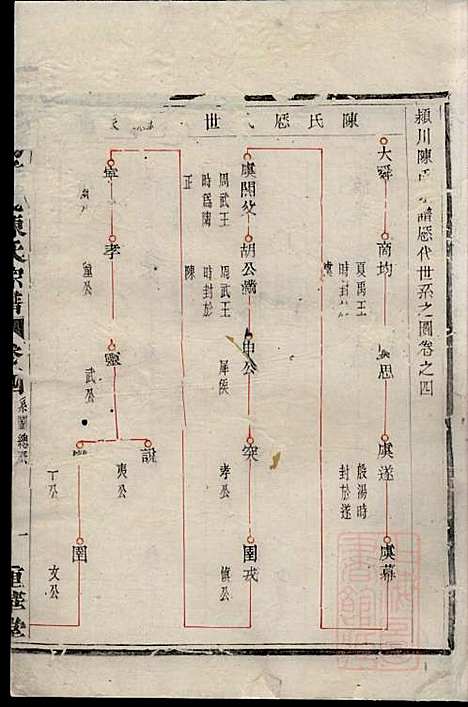 穎川陳氏宗譜歷代世系之圖卷之四
陳氏歷代世
大舜
商均
夏禹王時封於虞
思
虞遂
殷湯時封於遂
虞幕
虞閼父
周武王時為陶正
胡公滿
周武王時封於陳
申公
犀侯
突
孝公
圉戎
慎公
寧
孝
釐公
靈
武公
說
夷公
平公
圉
文公
陳氏宗譜
卷四
系圖總
一